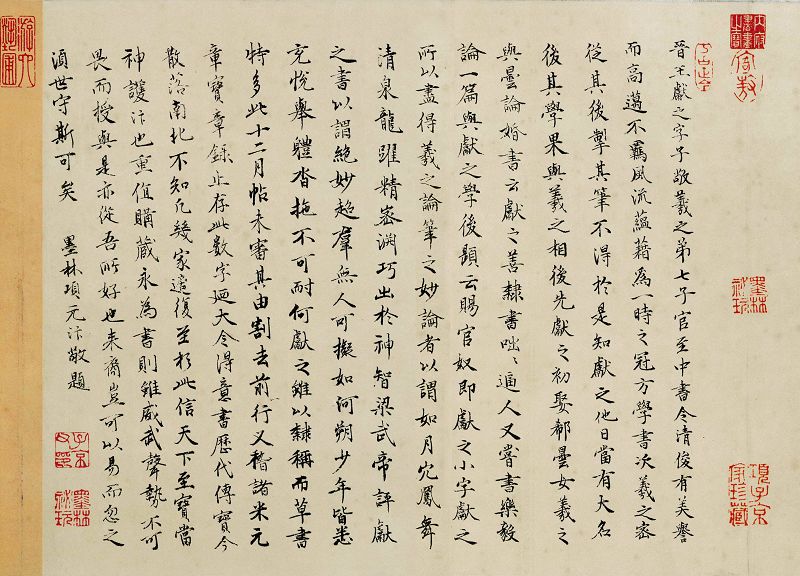 晉王獻之字子敬羲之弟七子官至中書令清俊有美譽
而高邁不羈風流蘊藉為一時之冠方學書次羲之密
從其後掣其筆不得於是知獻之他日當有大名
後其學果與羲之相後先獻之初娶郗曇女羲之
與曇論婚書云獻之善隸書咄〻逼人又嘗書樂毅
論一篇與獻之學後題云賜官奴即獻之小字獻之
所以盡得羲之論筆之妙論者以謂如月穴鳳舞
清泉龍躍精密淵巧出於神智梁武帝評獻
之書以謂絕妙超羣無人可擬如河朔少年皆悉
充悅舉體沓拖不可耐何獻之雖以隸稱而草書
特多此十二月帖未審其由割去前行又稽諸米元
章寶章錄止存此數字迺大令得意書歷代傳寶今
散落南北不知凡幾家復至於此信天下至寶當
神護汴也重值購藏永為書則雖威武聲勢不可
畏而授與是亦從吾所好也来裔豈可以易而忽之
須世守斯可矣 墨林項元汴敬題
墨林祕玩
項子京家珍藏
子京父印
墨林祕玩